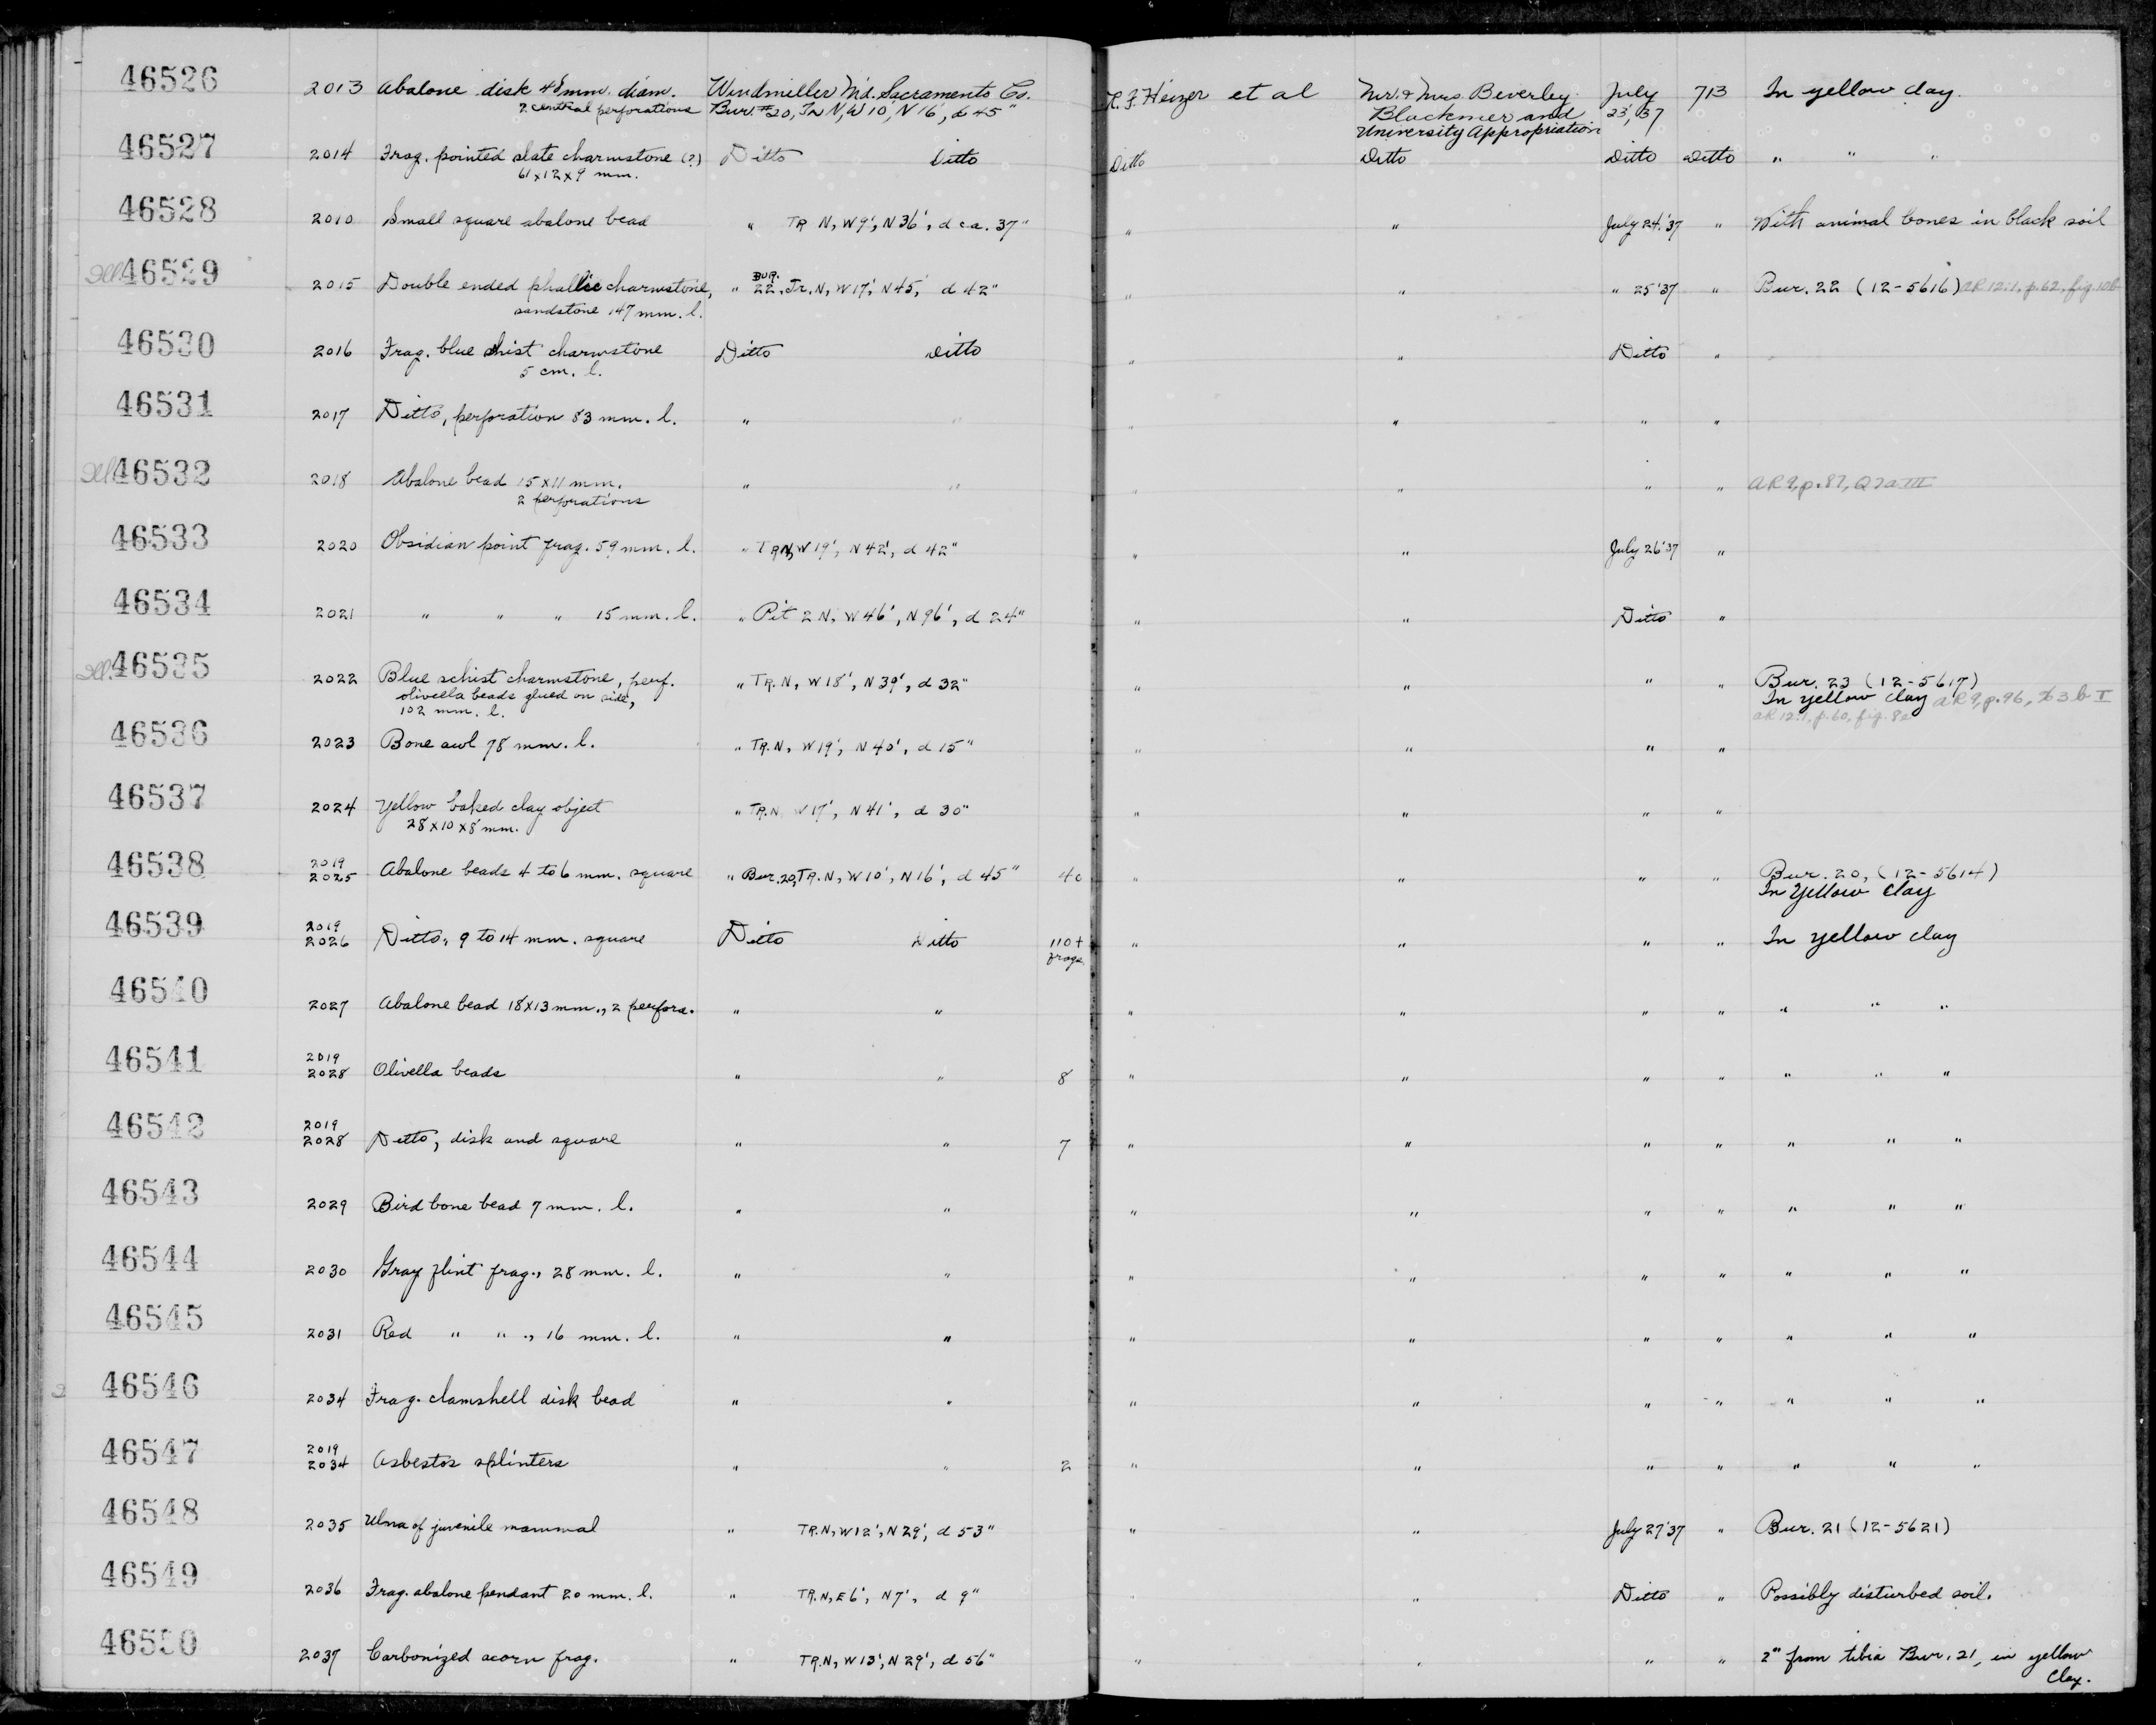 46526 2013 Abalone disk 48 mm. diam. Windmiller Md. Sacramento Co. R. F. Heizer et al Mr. & Mrs. Beverley July 713 In yellow clay.
2 central perforations Bur. #20, Tr N, W 10', N 16', d 45" Blackmer and 23, '37
University Appropriation
46527 2014 Frag. pointed slate charmstone (?) Ditto Ditto Ditto Ditto Ditto Ditto " " "
61 x 12 x 9 mm.
46528 2010 Small square abalone bead " TR N, W 9', N 36', d ca. 37" " " July 24, '37 " With animal bones in black soil
Ill. 46529 2015 Double ended phallic charmstone, " Bur. 22, Tr. N, W 17', N 45', d 42" " " " 25 '37 " Bur. 22 (12-5616) AR 12:1, p. 62, fig. 10b
sandstone 147 mm. l.
46530 2016 Frag. blue shist charmstone Ditto Ditto " " Ditto "
5 cm. l.
46531 2017 Ditto, perforation 83 mm. l. " " " " " "
Ill. 46532 2018 Abalone bead 15 x 11 mm. " " " " " " AR 9, p. 87, Q 2a III
2 perforations
46533 2020 Obsidian point frag. 59 mm. l. " TR N, W 19', N 42', d 42" " " July 26 '37 "
46534 2021 " " " 15 mm. l. " Pit 2 N, W 46', N 96', d 24" " " Ditto "
Ill. 46535 2022 Blue schist charmstone, perf. " TR. N, W 18', N 39', d 32" " " " " Bur. 23 (12-5617)
olivella beads glued on side, In yellow clay AR 9, p. 96, b 3 b I
102 mm. l. AR 12:1, p. 60, fig. 8
46536 2023 Bone awl 78 mm. l. " TR. N, W 19', N 40', d 15" " " " "
46537 2024 Yellow baked clay object " TR. N W 17', N 41', d 30" " " " "
28 x 10 x 8 mm.
46538 2019 2025 Abalone beads 4 to 6 mm. square " Bur. 20, TR. N, W 10', N 16', d 45" 40 " " " " Bur. 20, (12-5614)
In Yellow Clay
46539 2019 2026 Ditto, 9 to 14 mm. square Ditto Ditto 110 + " " " " In yellow clay
frags.
46540 2027 Abalone bead 18 x 13 mm., 2 perfora. " " " " " " " " "
46541 2019 2028 Olivella beads " " 8 " " " " " " "
46542 2019 2028 Ditto, disk and square " " 7 " " " " " " "
46543 2029 Bird bone bead 7 mm. l. " " " " " " " " "
46544 2030 Gray flint frag., 28 mm. l. " " " " " " " " "
46545 2031 Red " " ., 16 mm. l. " " " " " " " " "
46546 2034 Frag. clamshell disk bead " " " " " " " " "
46547 2019 2034 Asbestos splinters " " 2 " " " " " " "
46548 2035 Ulna of juvenile mammal " TR. N, W 12', N 29', d 53" " " July 27 '37 " Bur. 21 (12-5621)
46549 2036 Frag. abalone pendant 20 mm. l. " TR. N, E 6', N 7', d 9" " " Ditto " Possibly disturbed soil.
46550 2037 Carbonized acorn frag. " TR. N, W 13', N 29', d 56" " " " " 2" from tibia Bur. 21, in yellow
clay.